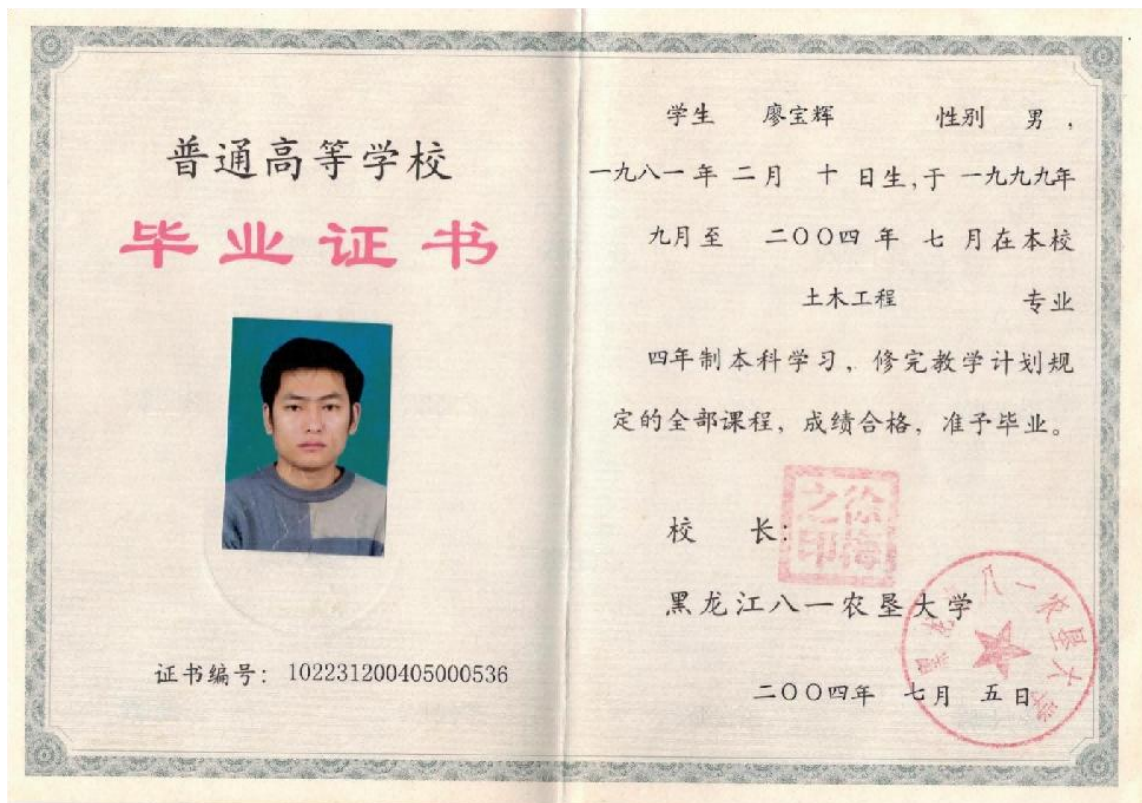 普通高等学校
毕业证书
证书编号：102231200405000536
学生 廖宝辉 性别 男，
一九八一年 二月 十 日生,于 一九九九年
九月至 二〇〇四 年 七 月在本校
土木工程 专业
四年制本科学习，修完教学计划规
定的全部课程，成绩合格，准予毕业。
校 长：
徐梅之印
黑龙江八一农垦大学
二〇〇四年 七月 五日
黑龙江八一农垦大学